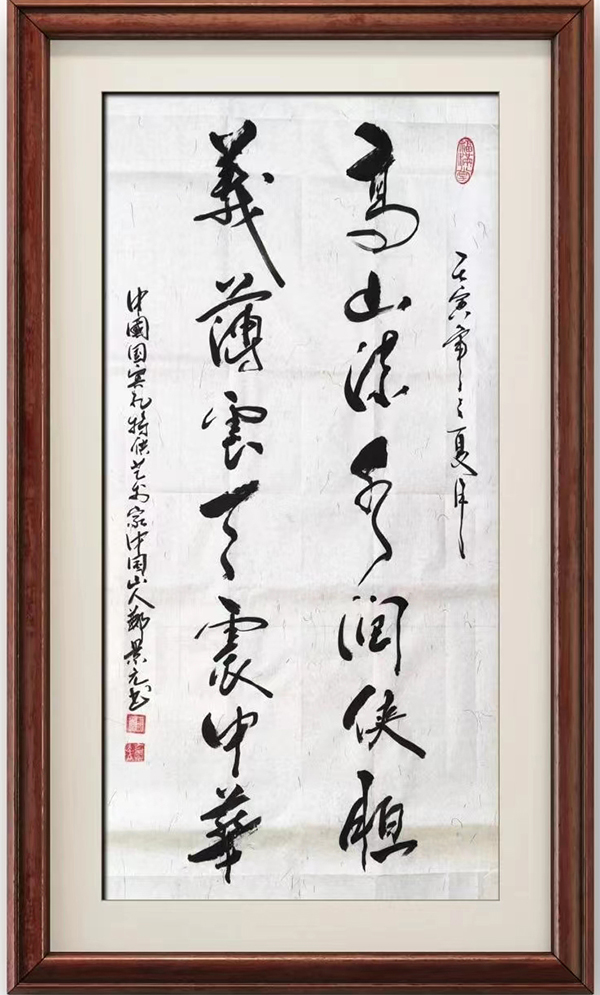 福满堂
壬寅年之夏月
高山流水润侠胆
義薄雲天震中華
中國国宾礼特供艺术家中国山人郑景元书